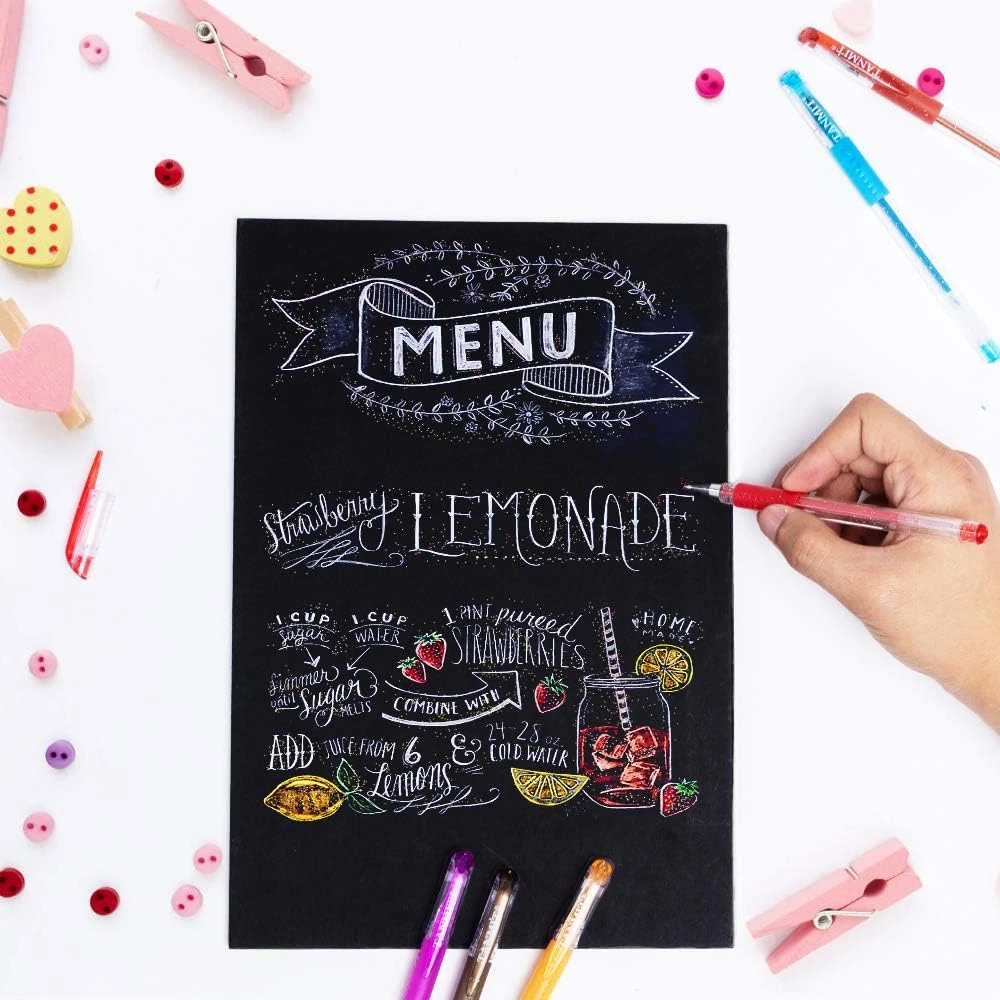 TANMIT®
TANMIT®
MENU
Strawberry LEMONADE
1 CUP sugar
1 CUP WATER
Simmer until Sugar MELTS
COMBINE WITH
1 PINT pureed STRAWBERRIES
HOME MADE
ADD JUICE FROM 6 Lemons
& 24-28 oz. COLD WATER
TANMIT